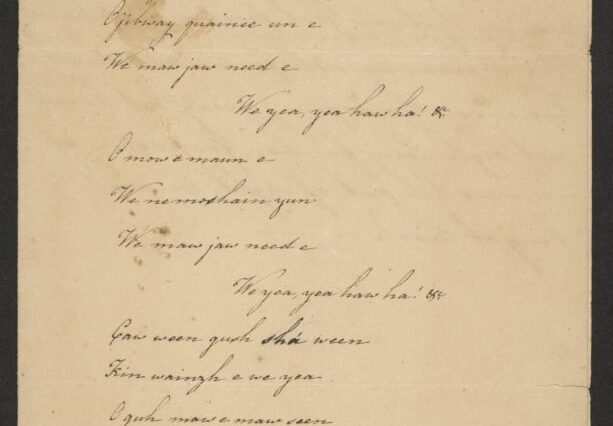 Ojibway quaince un e
We maw jaw need e
We yea, yea haw ha! &c
O mow e maun e
We nemoshain yun
We maw jaw need e
We yea, yea haw ha! &c
Caw ween gush shá ween
Kin wainzh e we yea
O guh maw e maw seen